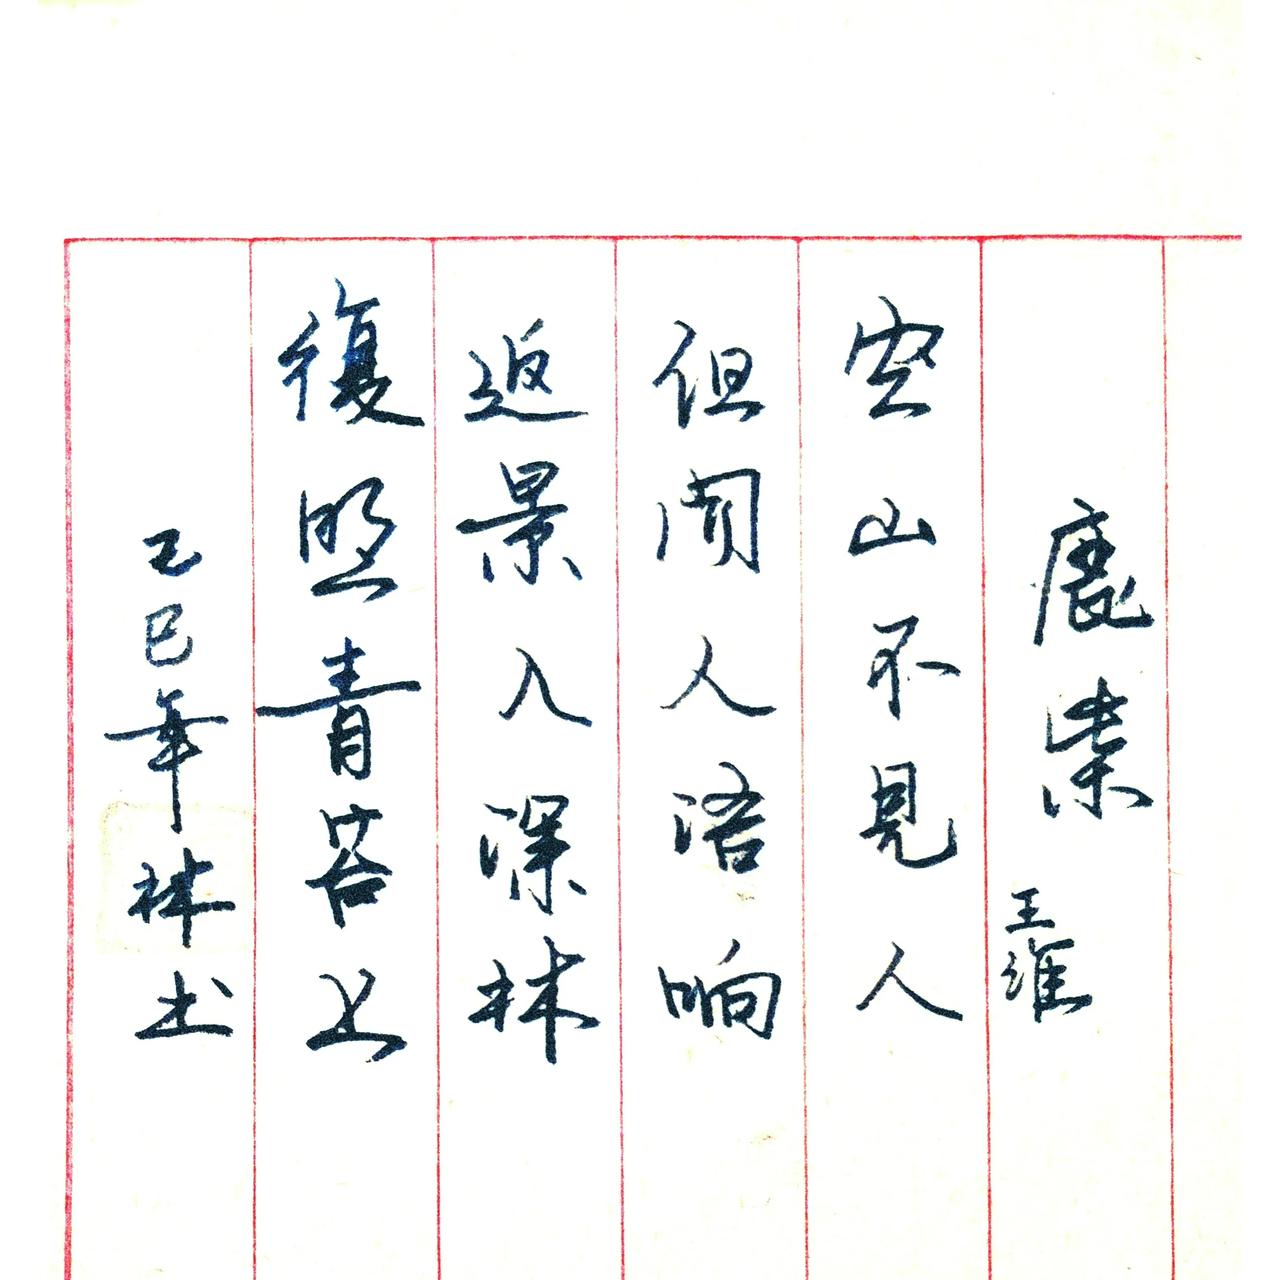 鹿柴 王維
空山不見人
但闻人语响
返景入深林
復照青苔上
乙巳年林书